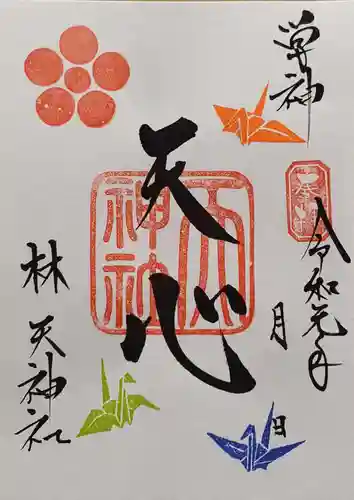 学神
奉拝
令和元年
月
日
天心
天神社
林
天神社